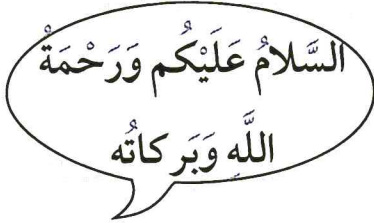 السَّلامُ عَلَيْكُم وَرَحْمَةُ
اللَّهِ وَبَرِكاتُه